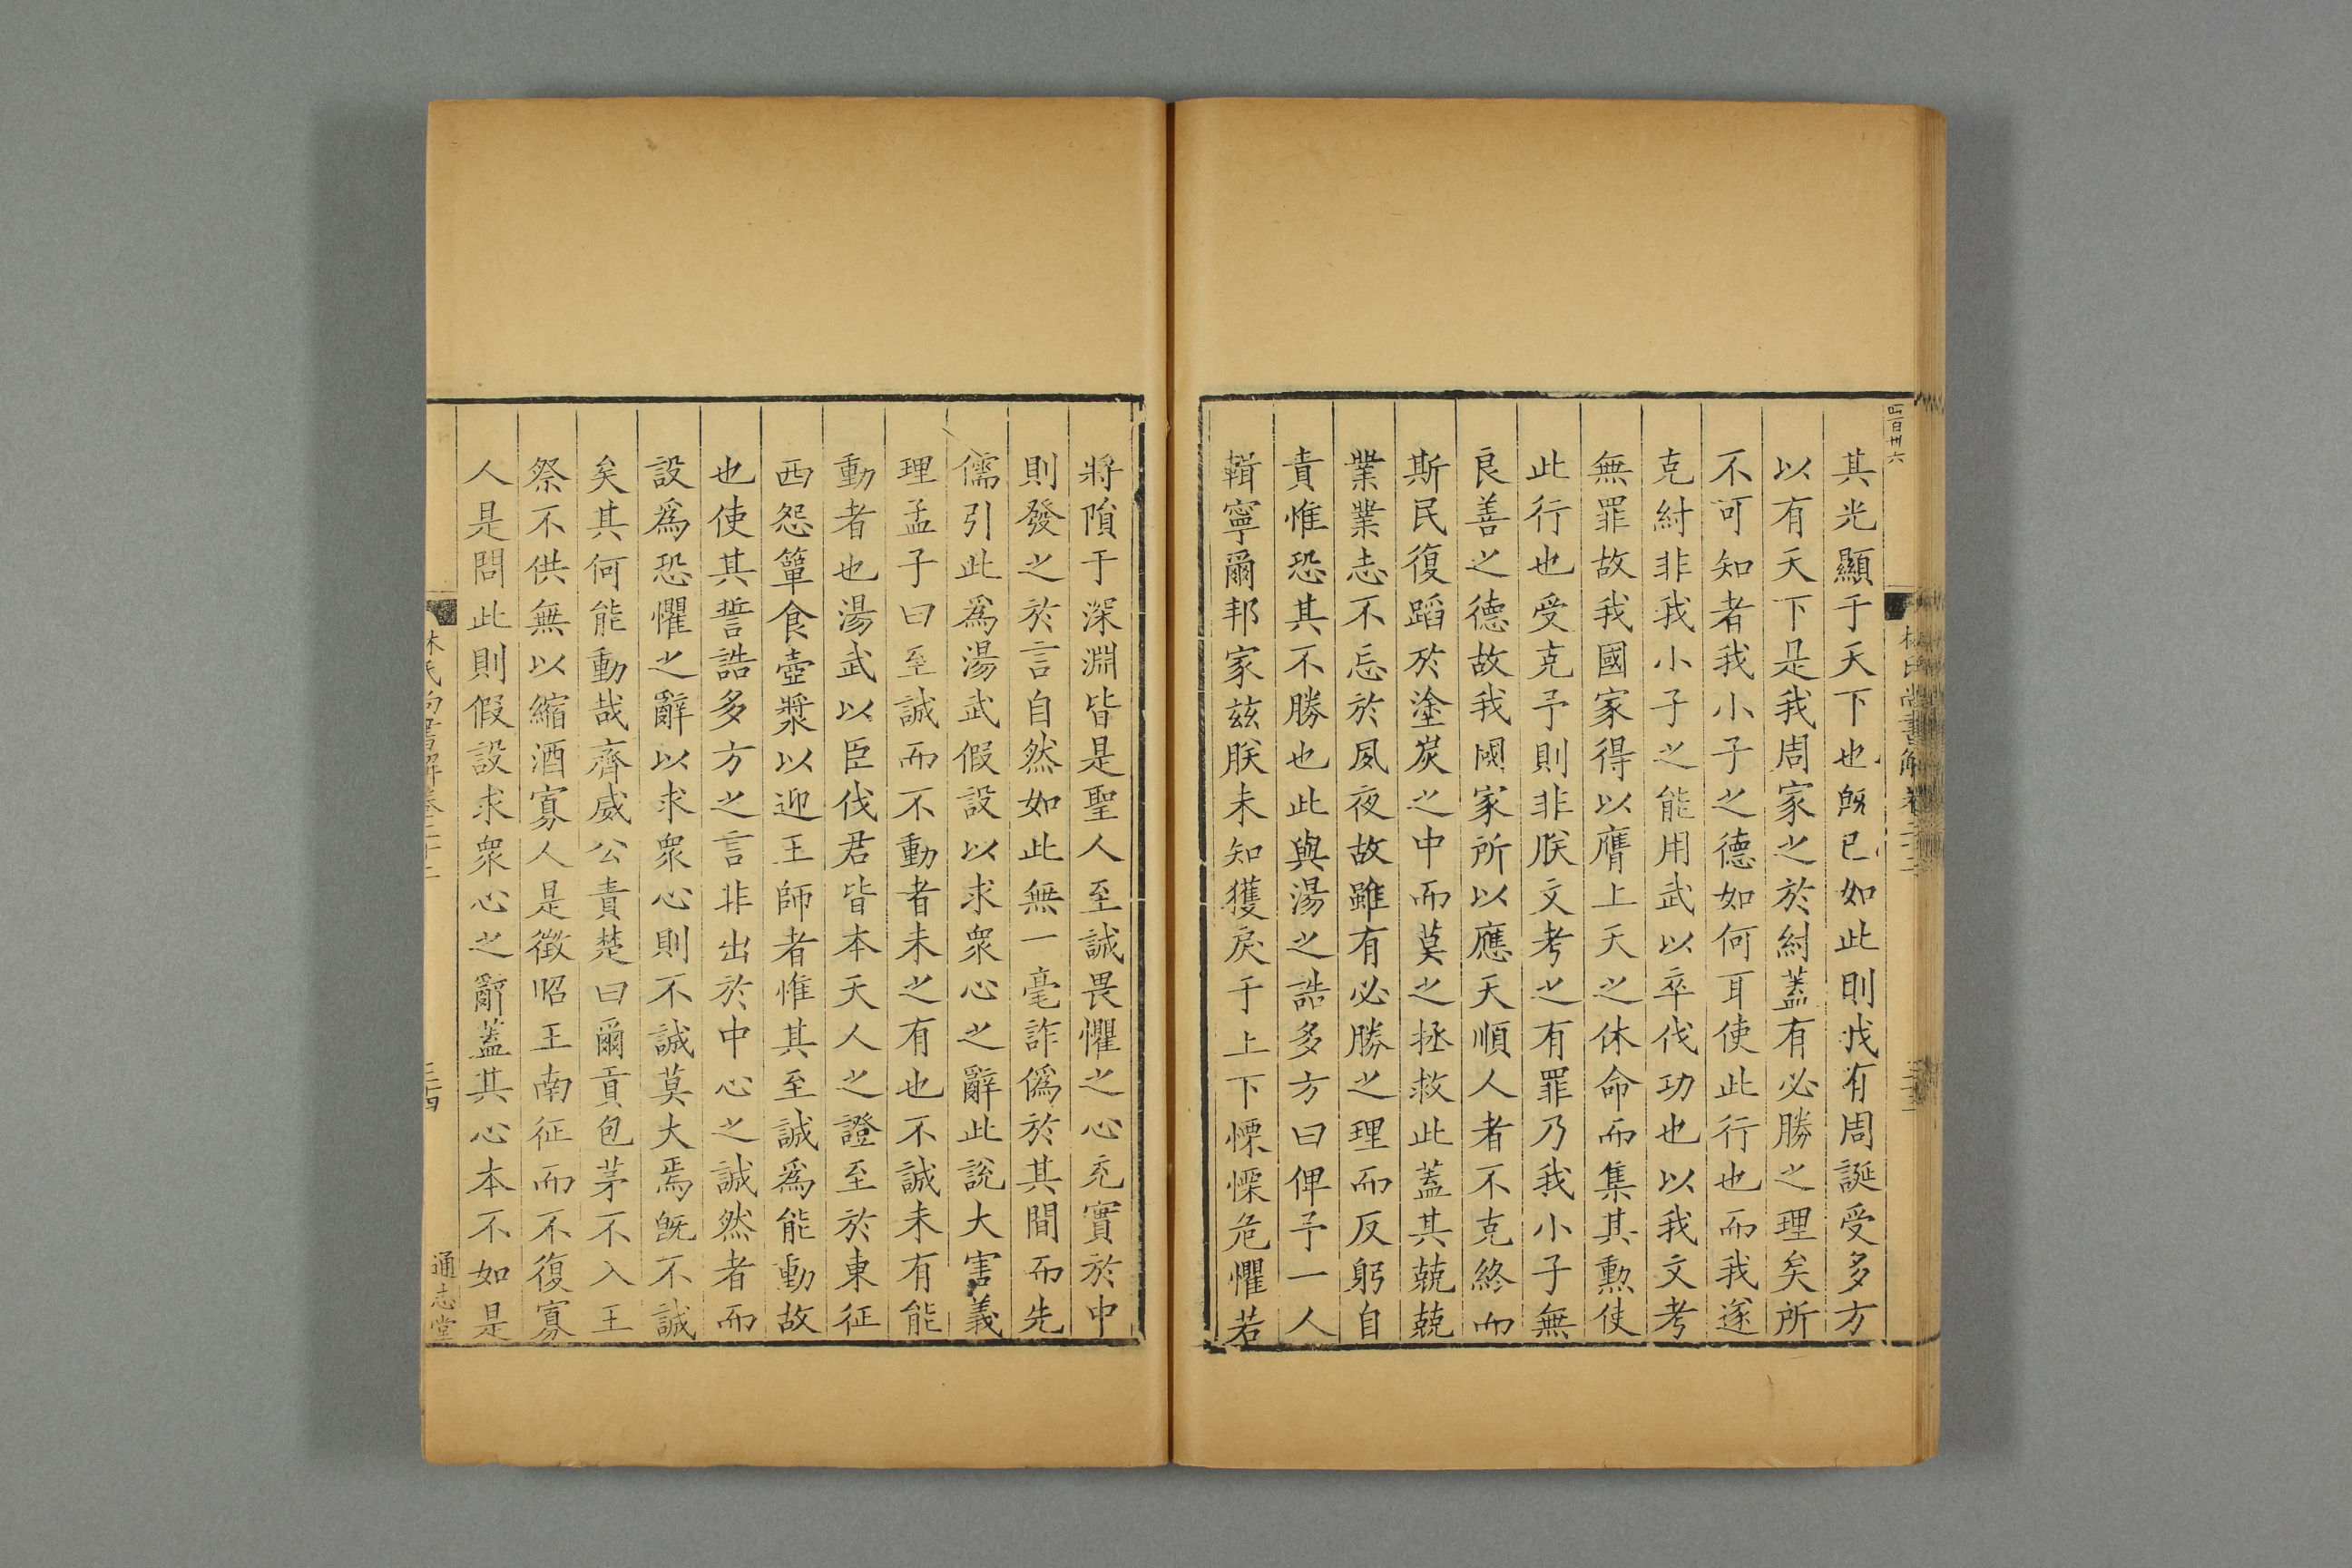 其光顯于天下也旣已如此則我有周誕受多方
以有天下是我周家之於紂蓋有必勝之理矣所
不可知者我小子之德如何耳使此行也而我遂
克紂非我小子之能用武以卒伐功也以我文考
無罪故我國家得以膺上天之休命而集其勲使
此行也受克予則非朕文考之有罪乃我小子無
良善之德故我國家所以應天順人者不克終而
斯民復蹈於塗炭之中而莫之拯救此蓋其兢兢
業業志不忘於夙夜故雖有必勝之理而反躬自
責惟恐其不勝也此與湯之誥多方曰俾予一人
輯寧爾邦家茲朕未知獲戾于上下慄慄危懼若
將隕于深淵皆是聖人至誠畏懼之心充實於中
則發之於言自然如此無一毫詐僞於其間而先
儒引此爲湯武假設以求衆心之辭此說大害義
理孟子曰至誠而不動者未之有也不誠未有能
動者也湯武以臣伐君皆本天人之證至於東征
西怨簞食壺漿以迎王師者惟其至誠爲能動故
也使其誓誥多方之言非出於中心之誠然者而
設爲恐懼之辭以求衆心則不誠莫大焉旣不誠
矣其何能動哉齊威公責楚曰爾貢包茅不入王
祭不供無以縮酒寡人是徵昭王南征而不復寡
人是問此則假設求衆心之辭蓋其心本不如是
林氏尚書解卷二十二
通志堂